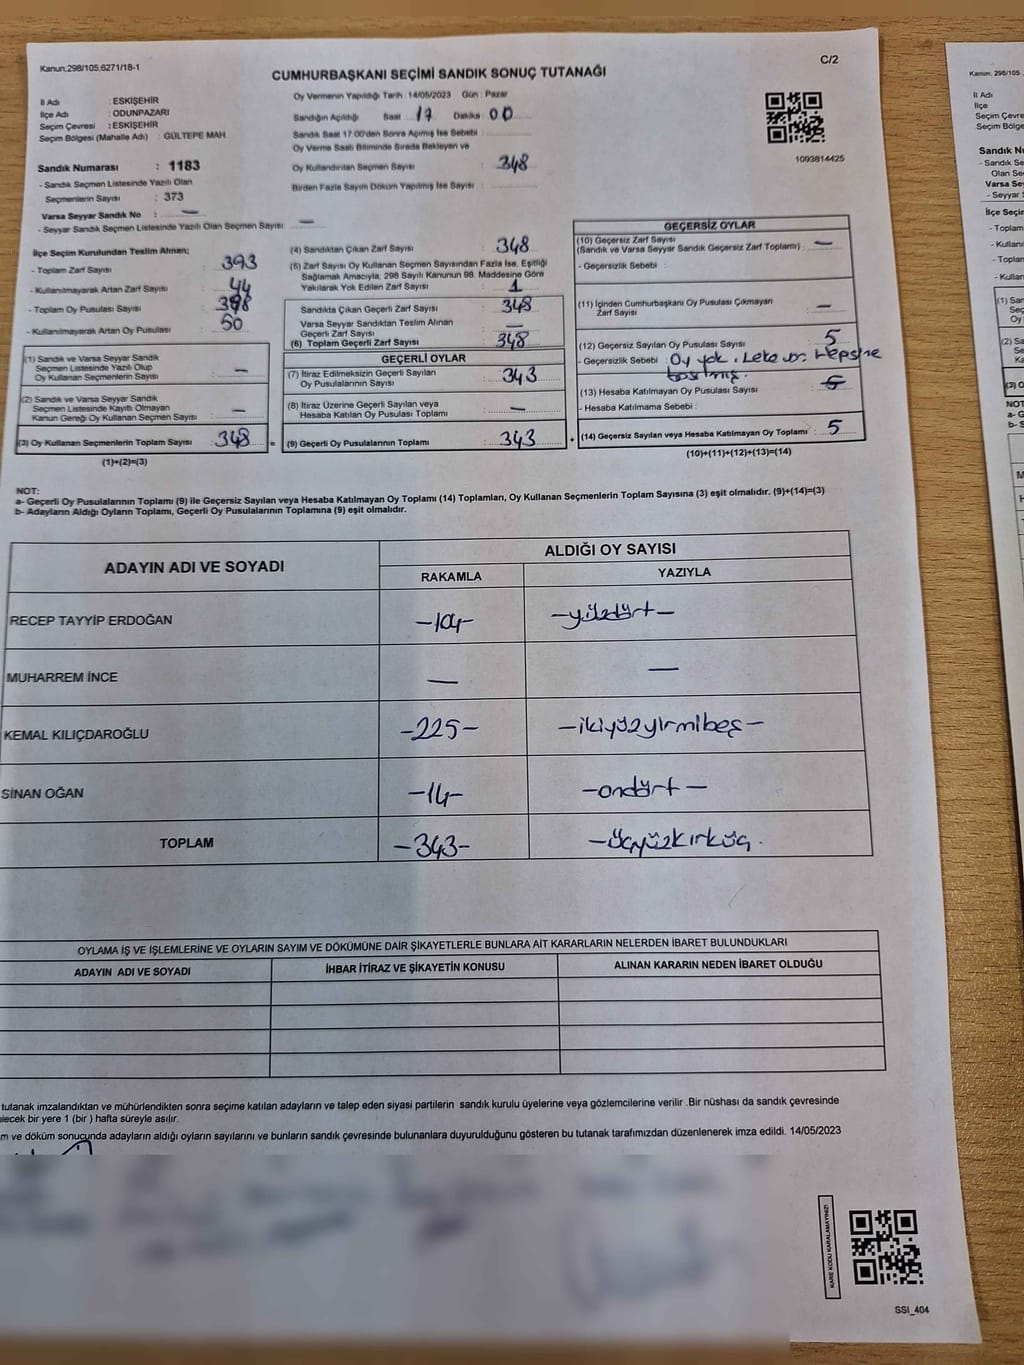 Kanun,298/105,6271/18-1
C/2
CUMHURBAŞKANI SEÇİMİ SANDIK SONUÇ TUTANAĞI
İl Adı : ESKİŞEHİR
İlçe Adı : ODUNPAZARI
Seçim Çevresi : ESKİŞEHİR
Seçim Bölgesi (Mahalle Adı) : GÜLTEPE MAH
Sandık Numarası : 1183
- Sandık Seçmen Listesinde Yazılı Olan
Seçmenlerin Sayısı : 373
Varsa Seyyar Sandık No : —
- Seyyar Sandık Listesinde Yazılı Olan Seçmen Sayısı : —
Oy Vermenin Yapıldığı Tarih : 14/05/2023 Gün : Pazar
Sandığın Açıldığı Saat : 17 Dakika : 00
Sandık Saat 17:00'den Sonra Açımış İse Sebebi :
Oy Verme Saati Bitiminde Sırada Bekleyen ve
Oy Kullandırılan Seçmen Sayısı : 348
Birden Fazla Sayım Döküm Yapılmış İse Sayısı :
1093814425
İlçe Seçim Kurulundan Teslim Alınan;
- Toplam Zarf Sayısı : 393
- Kullanılmayarak Artan Zarf Sayısı : 44
- Toplam Oy Pusulası Sayısı : 398
- Kullanılmayarak Artan Oy Pusulası : 50
(1) Sandık ve Varsa Seyyar Sandık
Seçmen Listesinde Yazılı Olup
Oy Kullanan Seçmenlerin Sayısı : —
(2) Sandık ve Varsa Seyyar Sandık
Seçmen Listesinde Kayıtlı Olmayan
Kanun Gereği Oy Kullanan Seçmen Sayısı : —
(3) Oy Kullanan Seçmenlerin Toplam Sayısı : 348 =
(1)+(2)=(3)
(4) Sandıktan Çıkan Zarf Sayısı : 348
(5) Zarf Sayısı Oy Kullanan Seçmen Sayısından Fazla İse, Eşitliği
Sağlamak Amacıyla, 298 Sayılı Kanunun 98. Maddesine Göre
Yakılarak Yok Edilen Zarf Sayısı : 1
Sandıkta Çıkan Geçerli Zarf Sayısı : 348
Varsa Seyyar Sandıktan Teslim Alınan
Geçerli Zarf Sayısı : —
(6) Toplam Geçerli Zarf Sayısı : 348
GEÇERLİ OYLAR
(7) İtiraz Edilmeksizin Geçerli Sayılan
Oy Pusulalarının Sayısı : 343
(8) İtiraz Üzerine Geçerli Sayılan veya
Hesaba Katılan Oy Pusulası Toplamı : —
(9) Geçerli Oy Pusulalarının Toplamı : 343 +
GEÇERSİZ OYLAR
(10) Geçersiz Zarf Sayısı
(Sandık ve Varsa Seyyar Sandık Geçersiz Zarf Toplamı) : —
- Geçersizlik Sebebi :
(11) İçinden Cumhurbaşkanı Oy Pusulası Çıkmayan
Zarf Sayısı : —
(12) Geçersiz Sayılan Oy Pusulası Sayısı : 5
- Geçersizlik Sebebi : Oy yok, Leke var. Hepsine
basılmış.
(13) Hesaba Katılmayan Oy Pusulası Sayısı : 5
- Hesaba Katılmama Sebebi :
(14) Geçersiz Sayılan veya Hesaba Katılmayan Oy Toplamı : 5
(10)+(11)+(12)+(13)=(14)
NOT:
a- Geçerli Oy Pusulalarının Toplamı (9) ile Geçersiz Sayılan veya Hesaba Katılmayan Oy Toplamı (14) Toplamları, Oy Kullanan Seçmenlerin Toplam Sayısına (3) eşit olmalıdır. (9)+(14)=(3)
b- Adayların Aldığı Oyların Toplamı, Geçerli Oy Pusulalarının Toplamına (9) eşit olmalıdır.
ADAYIN ADI VE SOYADI
ALDIĞI OY SAYISI
RAKAMLA YAZIYLA
RECEP TAYYİP ERDOĞAN -104- -yüzdört-
MUHARREM İNCE — —
KEMAL KILIÇDAROĞLU -225- -ikiyüzyirmibeş-
SİNAN OĞAN -14- -ondört-
TOPLAM -343- -üçyüzkırküç.
OYLAMA İŞ VE İŞLEMLERİNE VE OYLARIN SAYIM VE DÖKÜMÜNE DAİR ŞİKAYETLERLE BUNLARA AİT KARARLARIN NELERDEN İBARET BULUNDUKLARI
ADAYIN ADI VE SOYADI İHBAR İTİRAZ VE ŞİKAYETİN KONUSU ALINAN KARARIN NEDEN İBARET OLDUĞU
tutanak imzalandıktan ve mühürlendikten sonra seçime katılan adayların ve talep eden siyasi partilerin sandık kurulu üyelerine veya gözlemcilerine verilir .Bir nüshası da sandık çevresinde
bir yere 1 (bir ) hafta süreyle asılır.
ve döküm sonucunda adayların aldığı oyların sayılarını ve bunların sandık çevresinde bulunanlara duyurulduğunu gösteren bu tutanak tarafımızdan düzenlenerek imza edildi. 14/05/2023
KARE KODU KARALAMAYINIZ!
SSI_404
Kanun, 298/105
İl Adı
İlçe
Seçim Çevre
Seçim Bölge